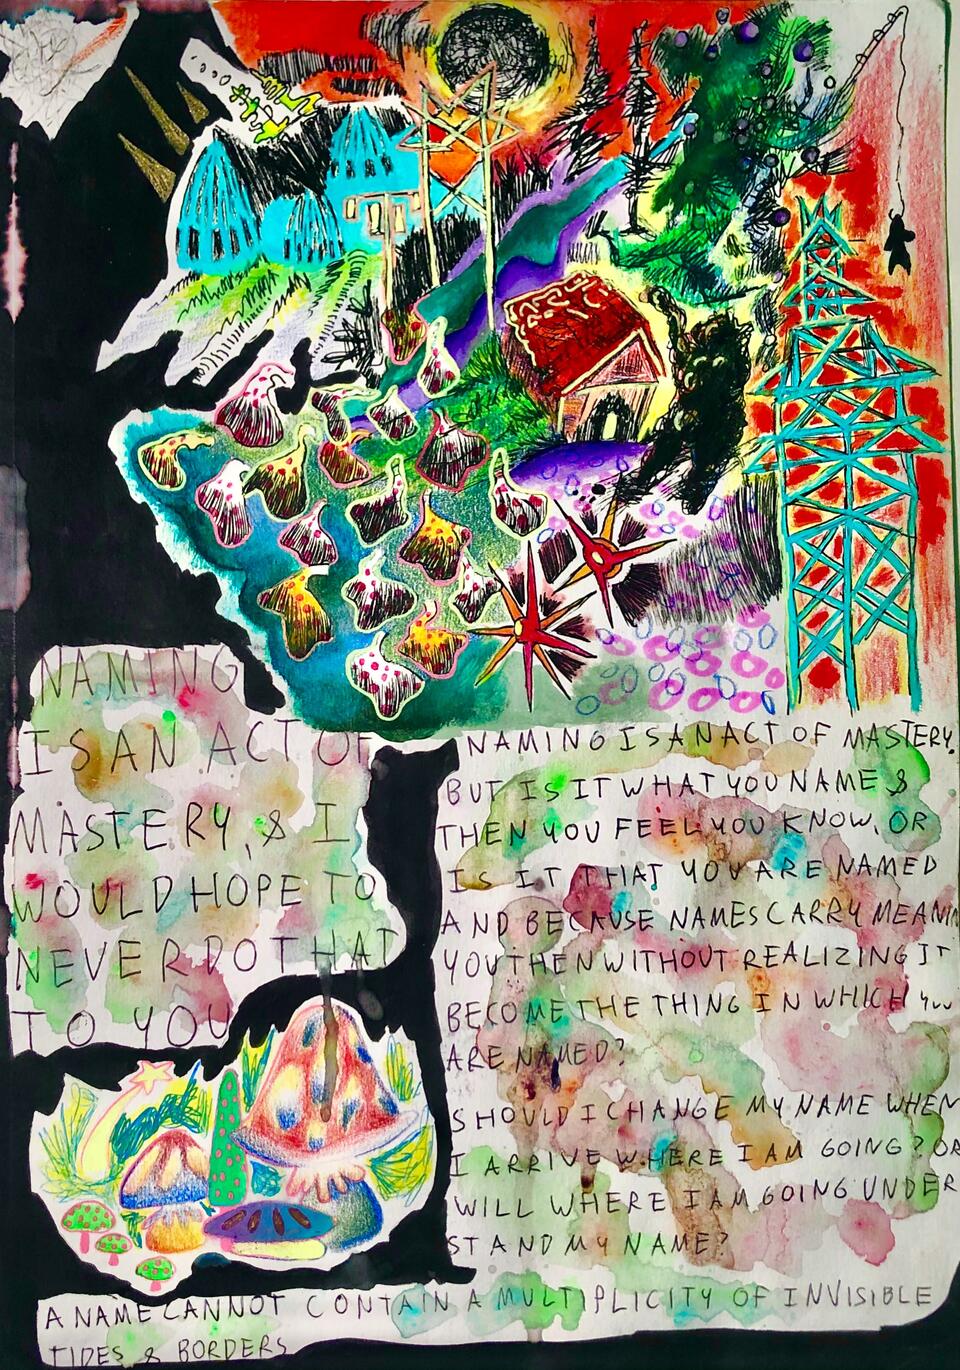 NAMING
IS AN ACT OF
MASTERY, & I
WOULD HOPE TO
NEVER DO THAT
TO YOU
NAMING IS AN ACT OF MASTERY,
BUT IS IT WHAT YOU NAME &
THEN YOU FEEL YOU KNOW, OR
IS IT THAT YOU ARE NAMED
AND BECAUSE NAMES CARRY MEANIN
YOU THEN WITHOUT REALIZING IT
BECOME THE THING IN WHICH you
ARE NAMED?
SHOULD I CHANGE MY NAME WHEN
I ARRIVE WHERE I AM GOING? OR
WILL WHERE I AM GOING UNDER
STAND MY NAME?
A NAME CANNOT CONTAIN A MULTIPLICITY OF INVISIBLE
TIDES & BORDERS